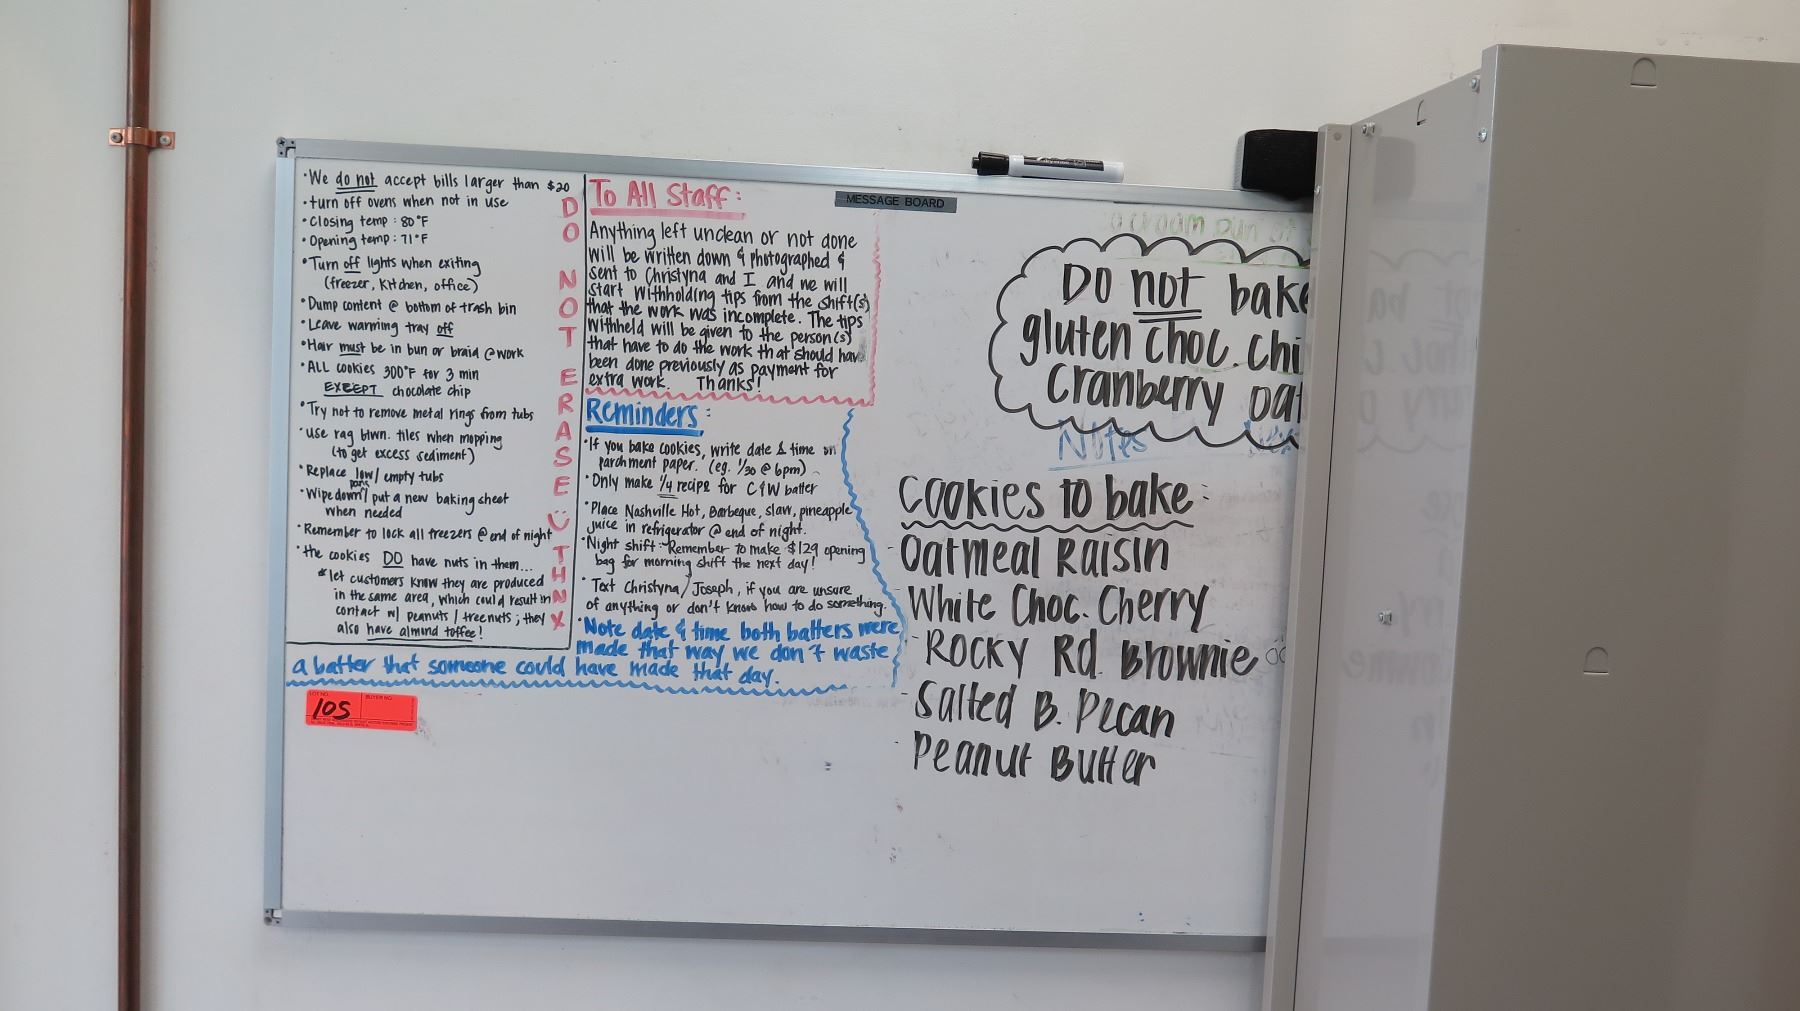 · We do not accept bills larger than $20
· turn off ovens when not in use
· Closing temp: 80°F
· Opening temp: 71°F
· Turn off lights when exiting
(freezer, kitchen, office)
· Dump content @ bottom of trash bin
· Leave warming tray off
· Hair must be in bun or braid @ work
· ALL cookies 300°F for 3 min
EXCEPT chocolate chip
· Try not to remove metal rings from tubs
· use rag btwn. tiles when mopping
(to get excess sediment)
· Replace low/empty tubs
pans
· Wipe down/put a new baking sheet
when needed
· Remember to lock all freezers @ end of night
· the cookies DO have nuts in them...
* let customers know they are produced
in the same area, which could result in
contact w/ peanuts/treenuts; they
also have almond toffee!
DO NOT ERASE :) THNX
To All Staff:
Anything left unclean or not done
will be written down & photographed &
sent to Christyna and I and we will
start withholding tips from the shift(s)
that the work was incomplete. The tips
withheld will be given to the person(s)
that have to do the work that should have
been done previously as payment for
extra work. Thanks!
Reminders:
· If you bake cookies, write date & time on
parchment paper. (eg. 1/30 @ 6pm)
· Only make 1/4 recipe for C&W batter
· Place Nashville Hot, Barbeque, slaw, pineapple
juice in refrigerator @ end of night.
· Night shift: Remember to make $129 opening
bag for morning shift the next day!
· Text Christyna/Joseph, if you are unsure
of anything or don't know how to do something.
· Note date & time both batters were
made that way we don't waste
a batter that someone could have made that day.
LOT NO.
BUYER NO.
105
MESSAGE BOARD
Do not bake
gluten choc. chi
cranberry oat
Notes
Cookies to bake:
- Oatmeal Raisin
- White Choc. Cherry
- Rocky Rd. Brownie
- Salted B. Pecan
- Peanut Butter